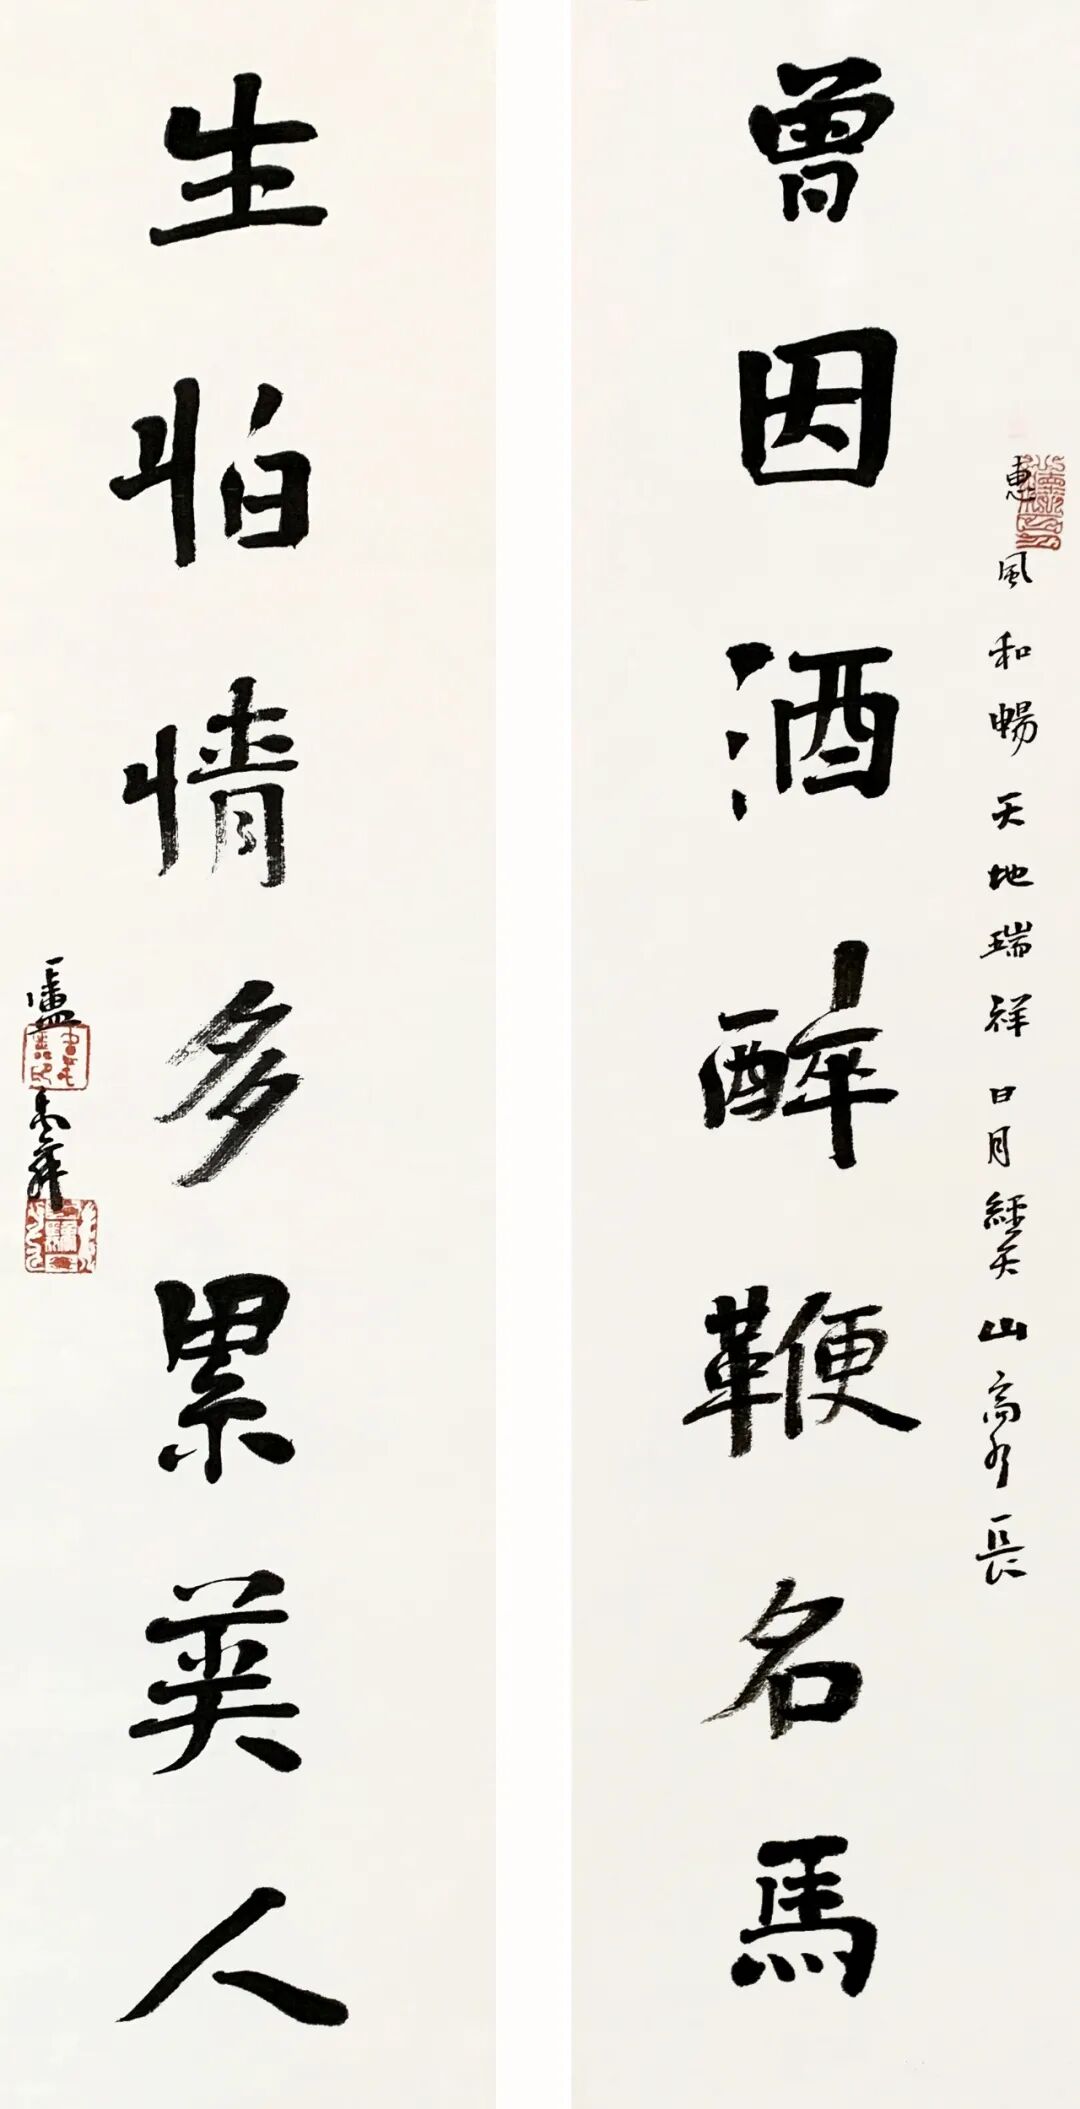 惠風和暢天地瑞祥日月經天山高水長
曾因酒醉鞭名馬
生怕情多累美人
盧禹舜